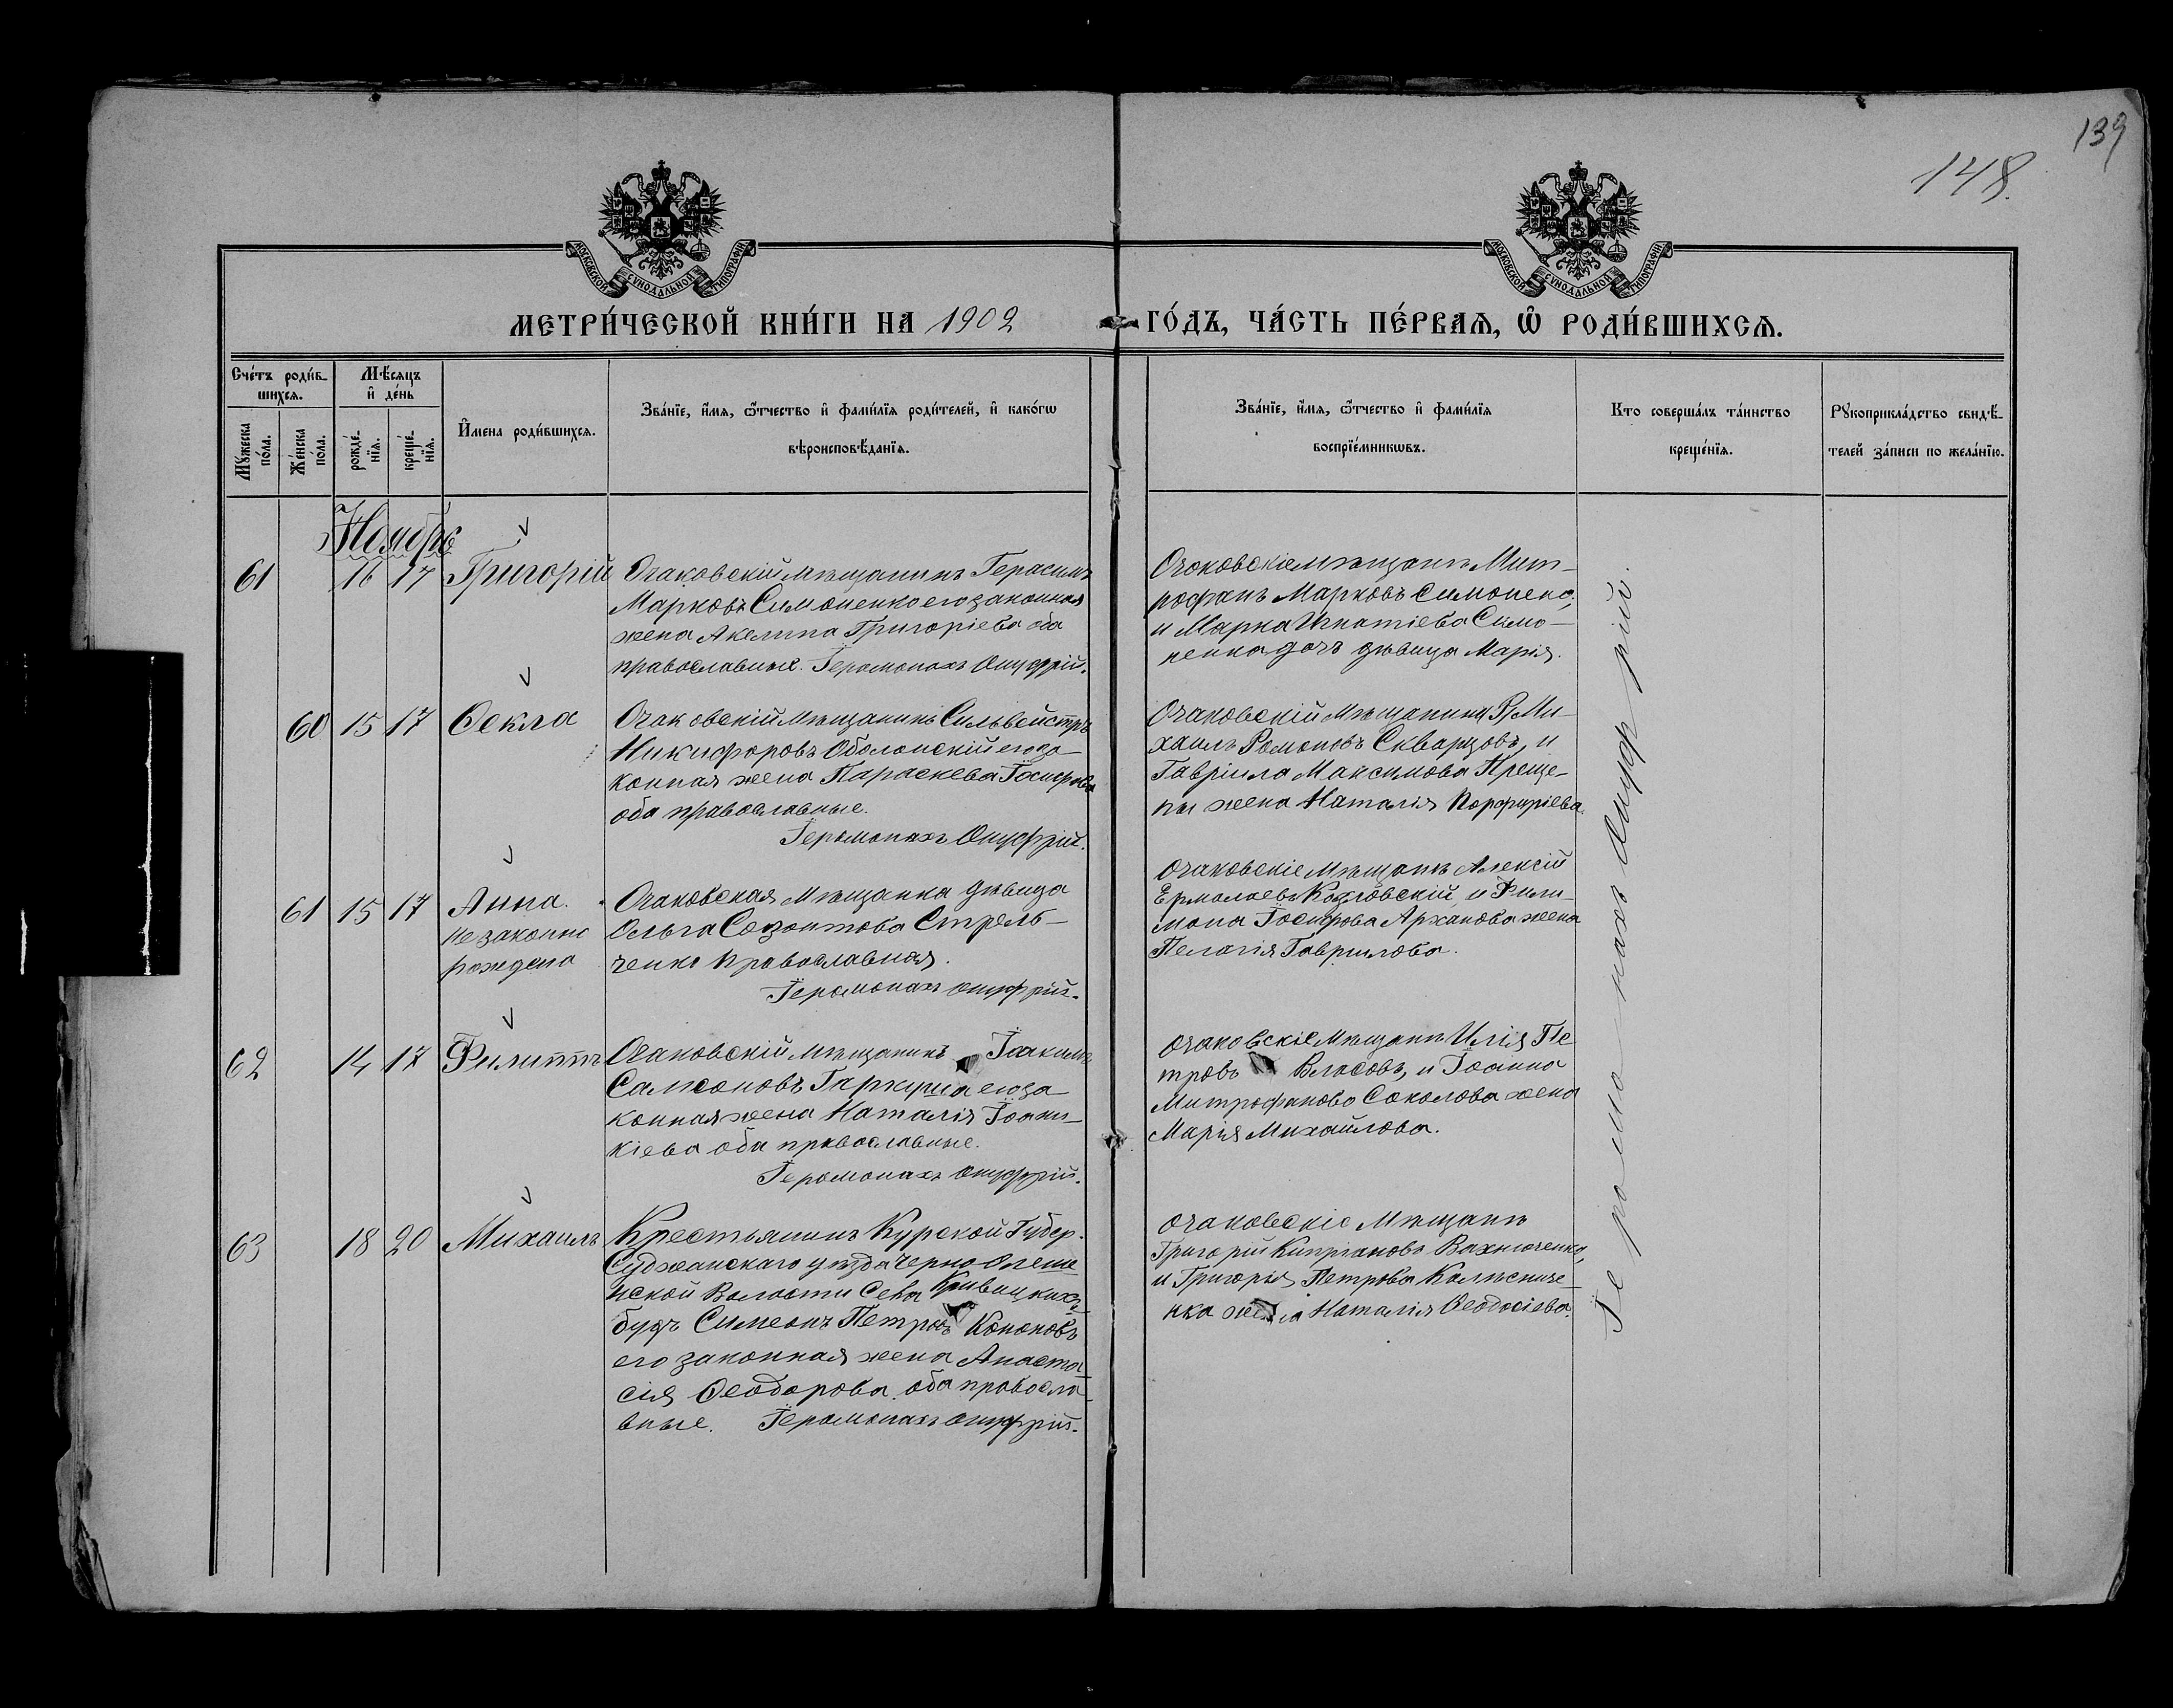 139
148.
МОСКОВСКОЙ СѴНОДАЛЬНОЙ ТИПОГРАФІИ
МОСКОВСКОЙ СѴНОДАЛЬНОЙ ТИПОГРАФІИ
МЕТРИ́ЧЕСКОЙ КНИ́ГИ НА 1902 ГО́ДЪ, ЧА́СТЬ ПЕ́РВАѦ, Ѡ҆ РОДИ́ВШИХСѦ.
Сче́тъ роди́в-
шихсѧ.
Мꙋ́жеска по́ла.
Же́нска по́ла.
Мѣ́сѧцъ
и҆ де́нь
рожде́-
нїѧ.
креще́-
нїѧ.
И҆мена роди́вшихсѧ.
Зва́нїе, и҆́мѧ, ѻ҆́тчество и҆ фами́лїѧ роди́телей, и҆ како́гѡ
вѣроисповѣ́данїѧ.
Зва́нїе, и҆́мѧ, ѻ҆́тчество и҆ фами́лїѧ
воспрїе́мникѡвъ.
Кто соверша́лъ та́инство
креще́нїѧ.
Рꙋкоприкла́дство свидѣ́-
телей за́писи по жела́нїю.
Ноябрь
61 16 17 Григорій
Очаковскій мѣщанинъ Герасимъ
Марковъ Симоненко его законная
жена Акелина Григоріева оба
православные. Іеромонахъ Онуфрій.
Очаковскіе мѣщане Мит-
рофанъ Марковъ Симоненко,
и Марка Игнатіева Симо-
ненка дочь дѣвица Марія.
60 15 17 Ѳекла
Очаковскій мѣщанинъ Сильвейстръ
Никифоровъ Оболонскій его за-
конная жена Параскева Іосифова
оба православные.
Іеромонахъ Онуфрій.
Очаковскій мѣщанинъ Ми-
хаилъ Романовъ Скварцовъ, и
Гавріила Максимова Преще-
пы жена Наталія Порфиріева.
61 15 17 Анна.
Незаконно
рождена
Очаковская мѣщанка дѣвица
Ольга Созонтова Стрель-
ченко православная.
Іеромонахъ Онуфрій.
Очаковскіе мѣщане Алексій
Ермолаевъ Козловскій, и Фили-
мона Іосифова Арханова жена
Пелагія Гаврилова.
62 14 17 Филиппъ
Очаковскій мѣщанинъ Іоакимъ
Самсоновъ Гаркуша его за-
конная жена Наталія Іоани-
кіева оба православные.
Іеромонахъ Онуфрій.
Очаковскіе мѣщане Илія Пе
тровъ Власовъ, и Іоанна
Митрофанова Соколова жена
Марія Михайлова.
63 18 20 Михаилъ
Крестьянинъ Курской Губер.
Суджанскаго уѣзда Черно-Олеше
нской Волости Села Кривицкихъ
будъ Симеонъ Петровъ Кононовъ
его законная жена Анаста
сія Ѳеодорова оба правосла
вные. Іеромонахъ Онуфрій.
Очаковскіе мѣщане
Григорій Кипріановъ Вахнюченко,
и Григорія Петрова Колѣсниче-
нка жена Наталія Ѳеодосіева.
Іеромонахъ Онуфрій.